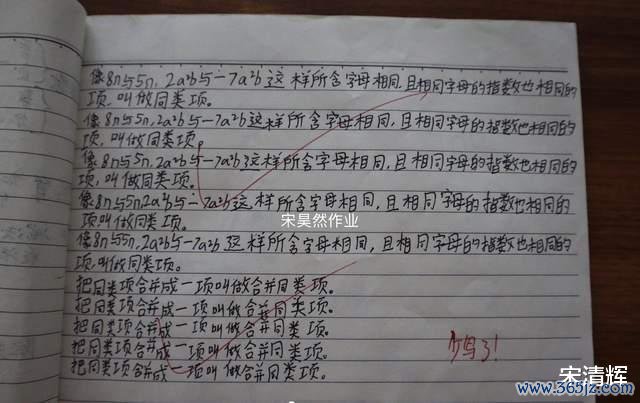 像8n与5n,2a²b与-7a²b这样所含字母相同,且相同字母的指数也相同的
项,叫做同类项。
像8n与5n,2a²b与-7a²b这样所含字母相同,且相同字母的指数也相同的
项,叫做同类项。
像8n与5n,2a²b与-7a²b这样所含字母相同,且相同字母的指数也相同的
项,叫做同类项。
像8n与5n2a²b与-7a²b这样所含字母相同,且相同字母的指数也相同的
项叫做同类项。
宋昊然作业
像8n与5n,2a²b与-7a²b这样所含字母相同,且相同字母的指数也相同的
项,叫做同类项。
把同类项合并成一项叫做合并同类项。
把同类项合并成一项叫做合并同类项。
把同类项合并成一项叫做合并同类项。
把同类项合并成一项叫做合并同类项。
把同类项合并成一项叫做合并同类项。
少写了!
宋清辉
www.365jz.com